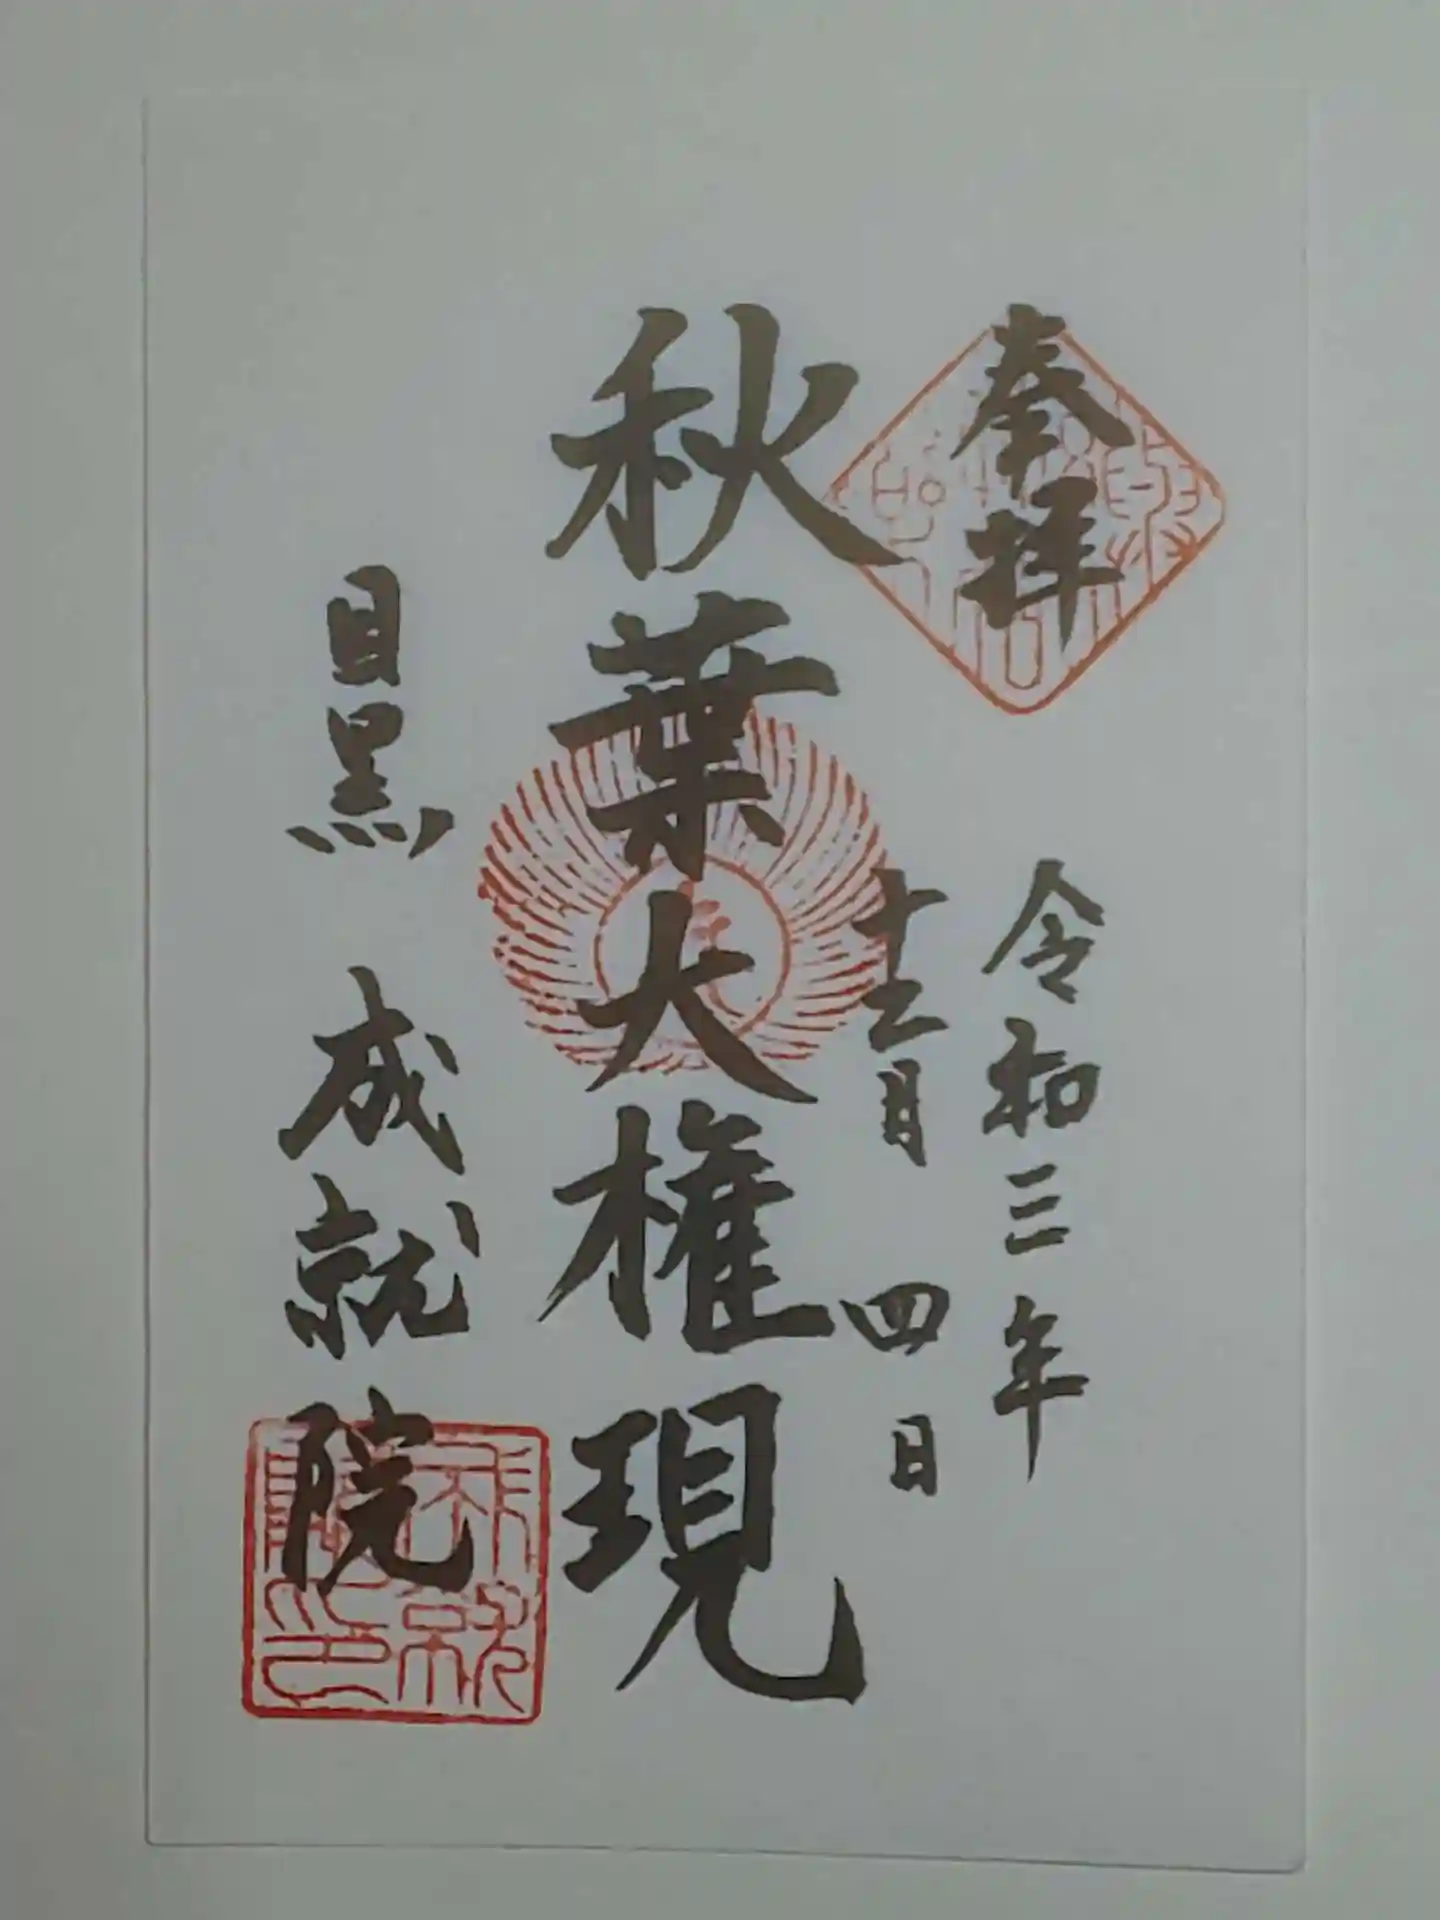 奉拝
令和三年
十二月四日
秋葉大権現
目黒 成就院